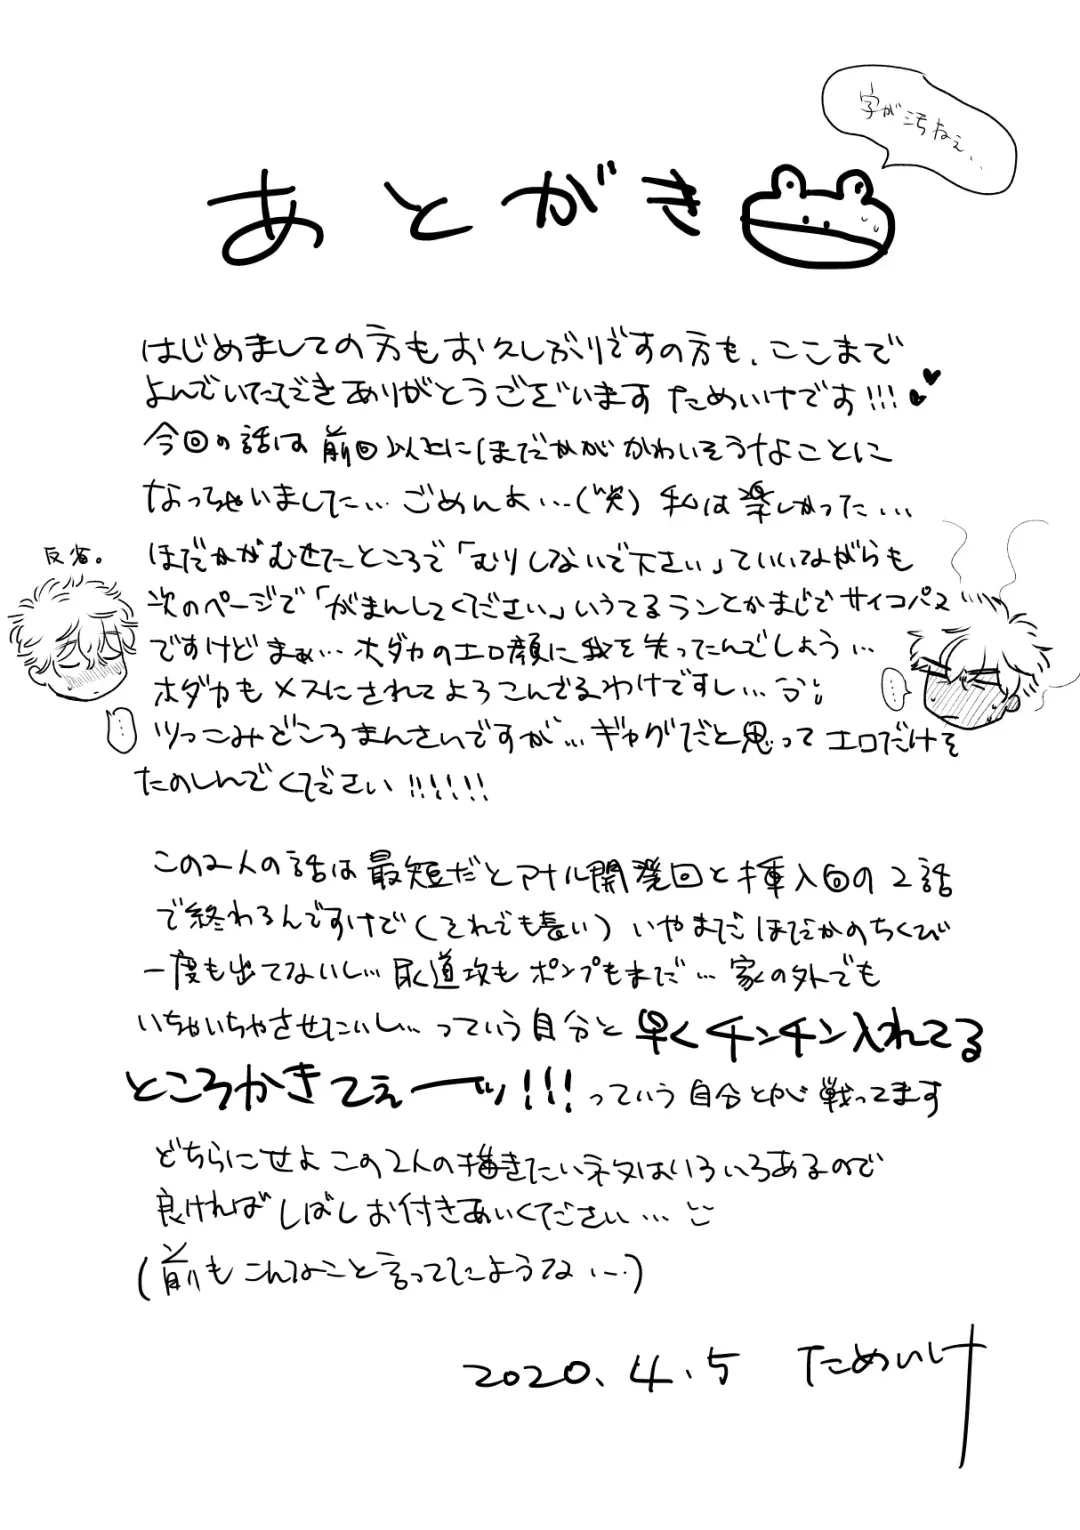 字が汚ねぇ...
あとがき
はじめましての方もお久しぶりですの方も、ここまで
よんでいただきありがとうございます ためいけです!!!
今回の話は前回以上にほだかがかわいそうなことに
なっちゃいました... ごめんよ...(笑) 私は楽しかった...
反省。
ほだかがむせたところで「むりしないで下さい」ていいながらも
次のページで「がまんしてください」いうてるランとかまじでサイコパス
ですけどまぁ... ホダカのエロ顔に我を失ってたんでしょう...
ホダカもメスにされてよろこんでるわけですし...
ツっこみどころまんさいですが... ギャグだと思ってエロだけを
たのしんでください!!!!!!
この2人の話は最短だとアナル開発回と挿入回の2話
で終わるんですけど(それでも長い) いやまだほだかのちくび
一度も出てないし... 尿道攻もポンプもまだ... 家の外でも
いちゃいちゃさせたいし... っていう自分と早くチンチン入れてる
ところかきてぇーッ!!! っていう自分とが戦ってます
どちらにせよこの2人の描きたいネタはいろいろあるので
良ければしばしお付きあいください...
(前もこんなこと言ってたような...)
2020.4.5 ためいけ